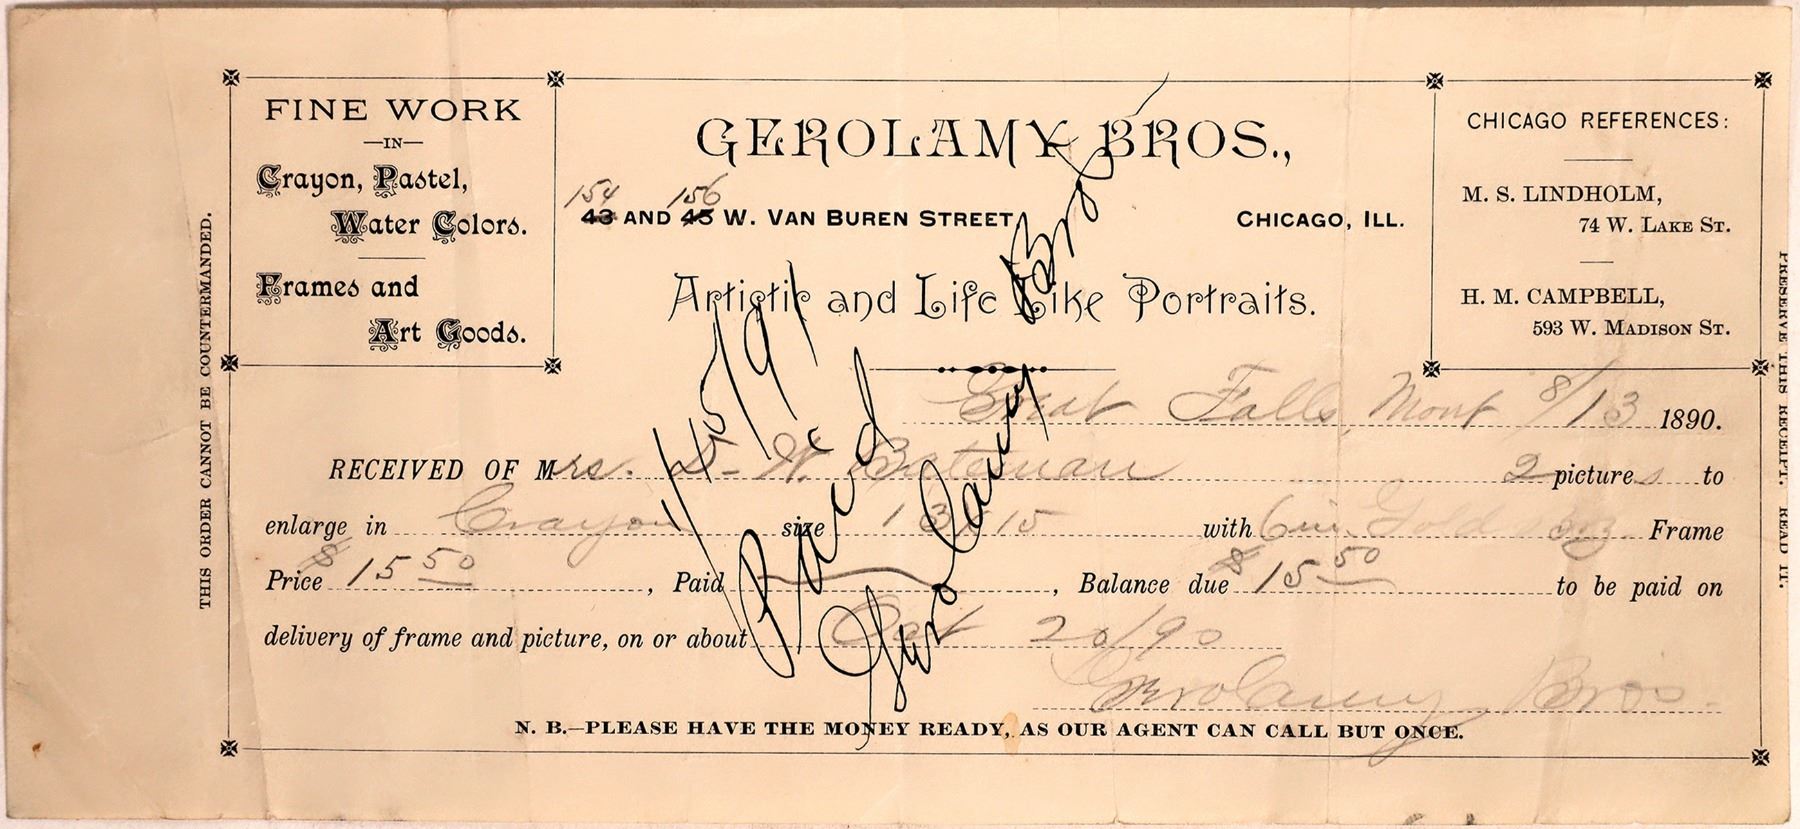 FINE WORK
—IN—
Crayon, Pastel,
Water Colors.
Frames and
Art Goods.
GEROLAMY BROS.,
154 156
43 AND 45 W. VAN BUREN STREET, CHICAGO, ILL.
Artistic and Life Like Portraits.
CHICAGO REFERENCES:
M. S. LINDHOLM,
74 W. LAKE ST.
H. M. CAMPBELL,
593 W. MADISON ST.
THIS ORDER CANNOT BE COUNTERMANDED.
Great Falls, Mont 8/13 1890.
RECEIVED OF Mrs. D. W. Bateman 2 pictures to
enlarge in Crayon size 13 x 15 with 6 in. Gold Frame
Price $15 50, Paid, Balance due $15 50 to be paid on
delivery of frame and picture, on or about Oct 20/90
Gerolamy Bros.
N. B.—PLEASE HAVE THE MONEY READY, AS OUR AGENT CAN CALL BUT ONCE.
Paid
Gerolamy Bros
PRESERVE THIS RECEIPT. READ IT.